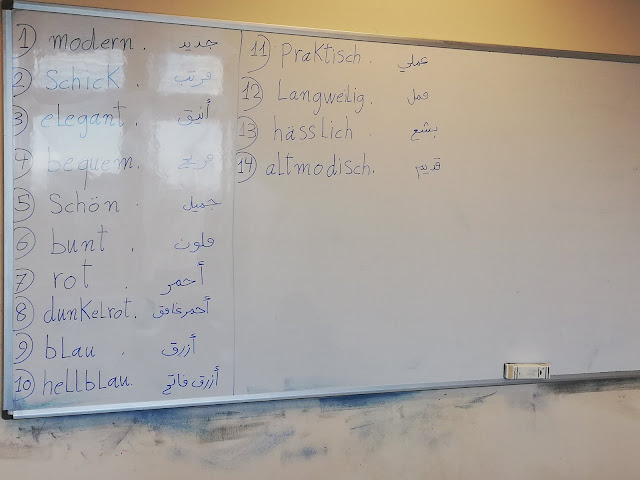 1 modern. جديد
2 Schick. مرتب
3 elegant. أنيق
4 bequem. مريح
5 Schön. جميل
6 bunt. ملون
7 rot. أحمر
8 dunkelrot. أحمر غامق
9 blau. أزرق
10 hellblau. أزرق فاتح
11 Praktisch. عملي
12 Langweilig. ممل
13 hässlich. بشع
14 altmodisch. قديم